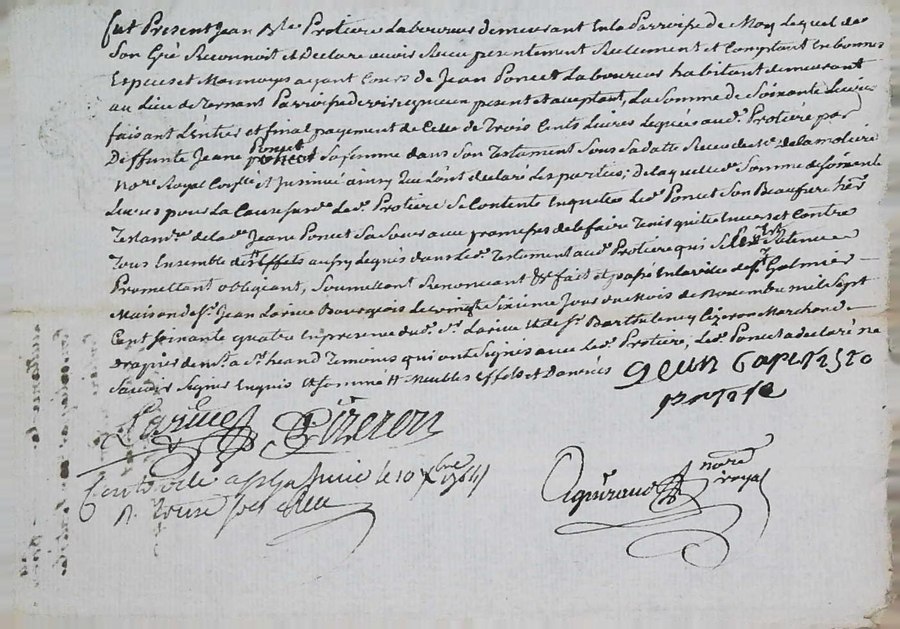 fut Present Jean Bte Protiere Laboureur demeurant En la Parroisse de Lequel de
Son Gré Reconnoit et Declare avoir Receu presentement Reellement et Comptant En bonnes
Especes et Monnoyes ayant Cours de Jean Poncet Laboureur habitant demeurant
au Lieu de Parroisse de present et acceptant, La Somme de Soixante Livres
faisant L'entier et final payement de Celle de Trois Cents Livres Leguée aud. Protiere par
Deffunte Jeane Poncet Sa femme dans Son Testament Sous Sa datte Receu de Me. de la moliere
nore Royal et Insinué ainsy qu'ils ont declaré Les parties; de laquelle Somme de Soixante
Livres pour La Cause Led. Protiere Se Contente En quitte Led. Poncet Son Beaufrere
de lad. Jeane Poncet Sa Soeur avec promesse de Le faire Tenir quitte Envers et Contre
Tous Ensemble des Effets aussy Legués dans Led. Testament aud. Protiere qui
Promettant obligeant, Soumettant Renonçant &c fait et passé En la ville de St. Galmier
Maison de Sr. Jean Larive Bourgeois Le vingt Sixieme Jour du Mois de Novembre mil Sept
Cent Soixante quatre En presence dud. Sr. Larive et de Sr. Barthelemy Cizeron Marchand
drapier de St. heand Temoins qui ont Signés avec Led. Protiere, Led. Poncet a declaré ne
Savoir Signer Enquis et Sommé Meubles Effets et Danrées Jean Baptiste
protiere
Larive Cizeron
Controllé a St. Galmier le 10 Xbre 1764
R.
nore royal